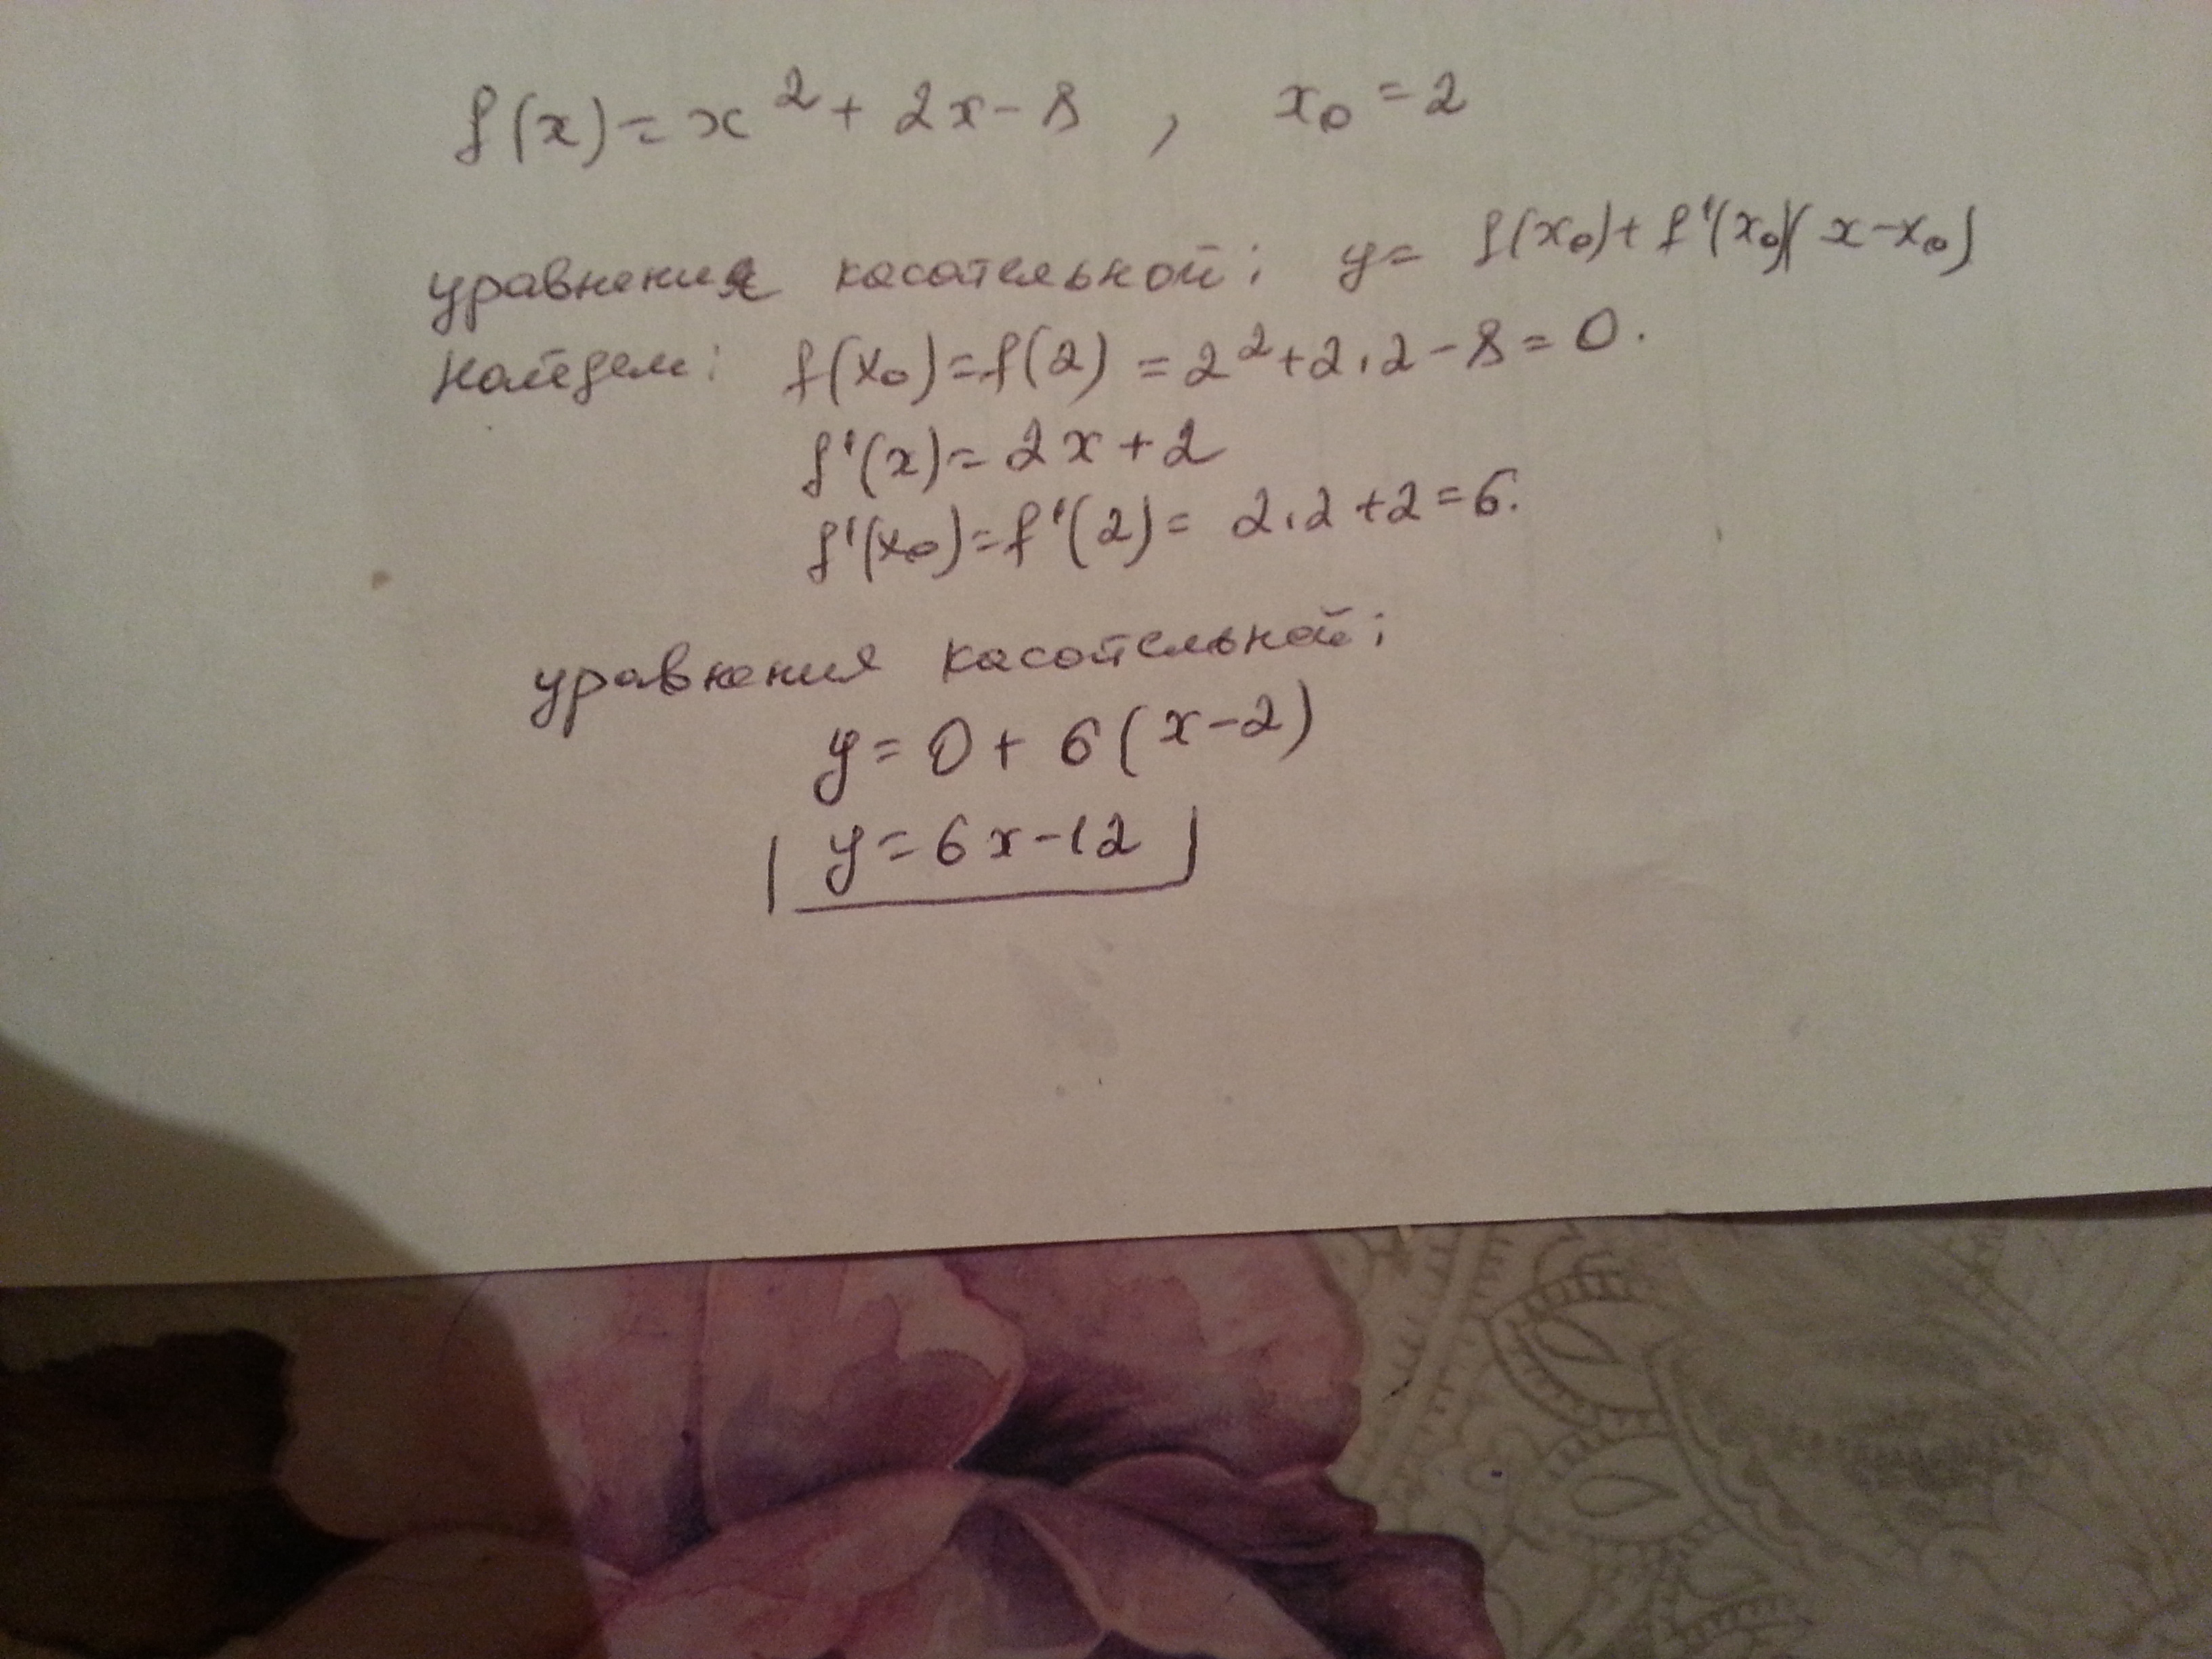 f(x) = x² + 2x - 8 , x₀ = 2
уравнения касательной: y = f(x₀) + f'(x₀)(x - x₀)
Найдем: f(x₀) = f(2) = 2² + 2·2 - 8 = 0.
f'(x) = 2x + 2
f'(x₀) = f'(2) = 2·2 + 2 = 6.
уравнения касательной:
y = 0 + 6(x - 2)
y = 6x - 12